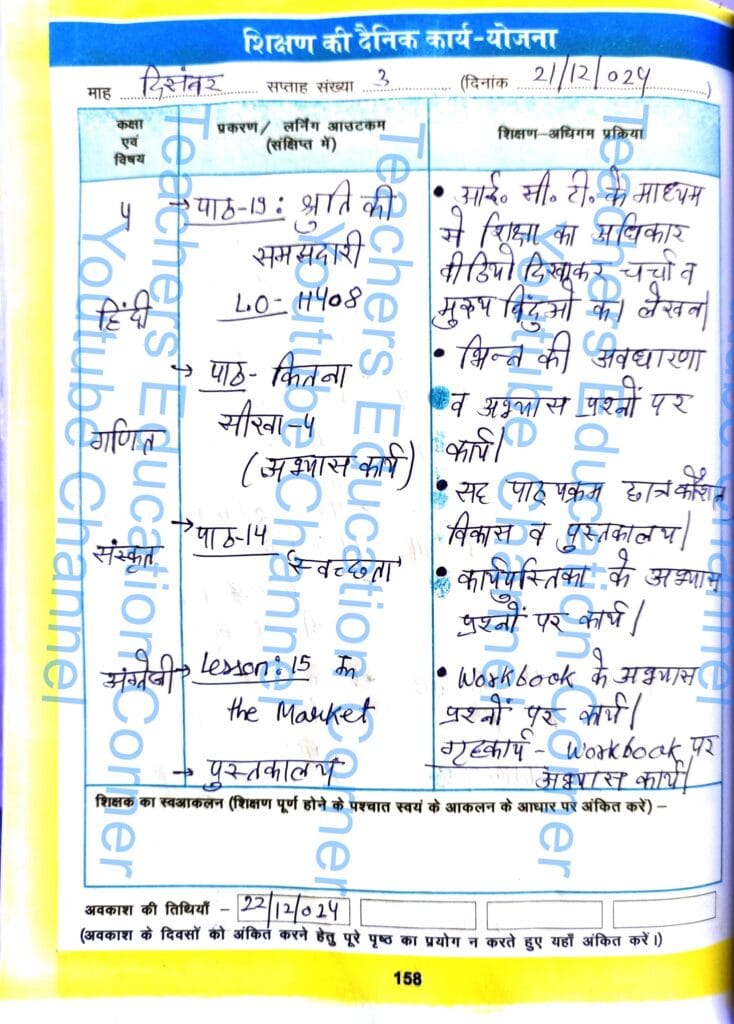 शिक्षण की दैनिक कार्य-योजना
माह दिसंबर सप्ताह संख्या 3 (दिनांक 21/12/024)
कक्षा एवं विषय
प्रकरण/ लर्निंग आउटकम (संक्षिप्त में)
शिक्षण-अधिगम प्रक्रिया
५
→ पाठ-19: श्रुति की
समझदारी
LO- H408
हिंदी
→ पाठ- कितना
सीखा-५
(अभ्यास कार्य)
गणित
संस्कृत
→ पाठ-14
स्वच्छता
अंग्रेजी
→ Lesson: 15 In
the Market
→ पुस्तकालय
• आई० सी० टी० के माध्यम
से शिक्षा का अधिकार
वीडियो दिखाकर चर्चा व
मुख्य बिंदुओ का लेखन|
• भिन्न की अवधारणा
व अभ्यास प्रश्नों पर
कार्य|
• सह पाठ्यक्रम छात्र कौशल
विकास व पुस्तकालय|
• कार्यपुस्तिका के अभ्यास
प्रश्नों पर कार्य|
• Workbook के अभ्यास
प्रश्नों पर कार्य|
गृहकार्य - Workbook पर
अभ्यास कार्य|
शिक्षक का स्वआकलन (शिक्षण पूर्ण होने के पश्चात स्वयं के आकलन के आधार पर अंकित करें) –
अवकाश की तिथियाँ – 22/12/024
(अवकाश के दिवसों को अंकित करने हेतु पूरे पृष्ठ का प्रयोग न करते हुए यहाँ अंकित करें।)
158
Teachers Education Corner
Youtube Channel
Teachers Education Corner
Youtube Channel
Teachers Education Corner
Youtube Channel